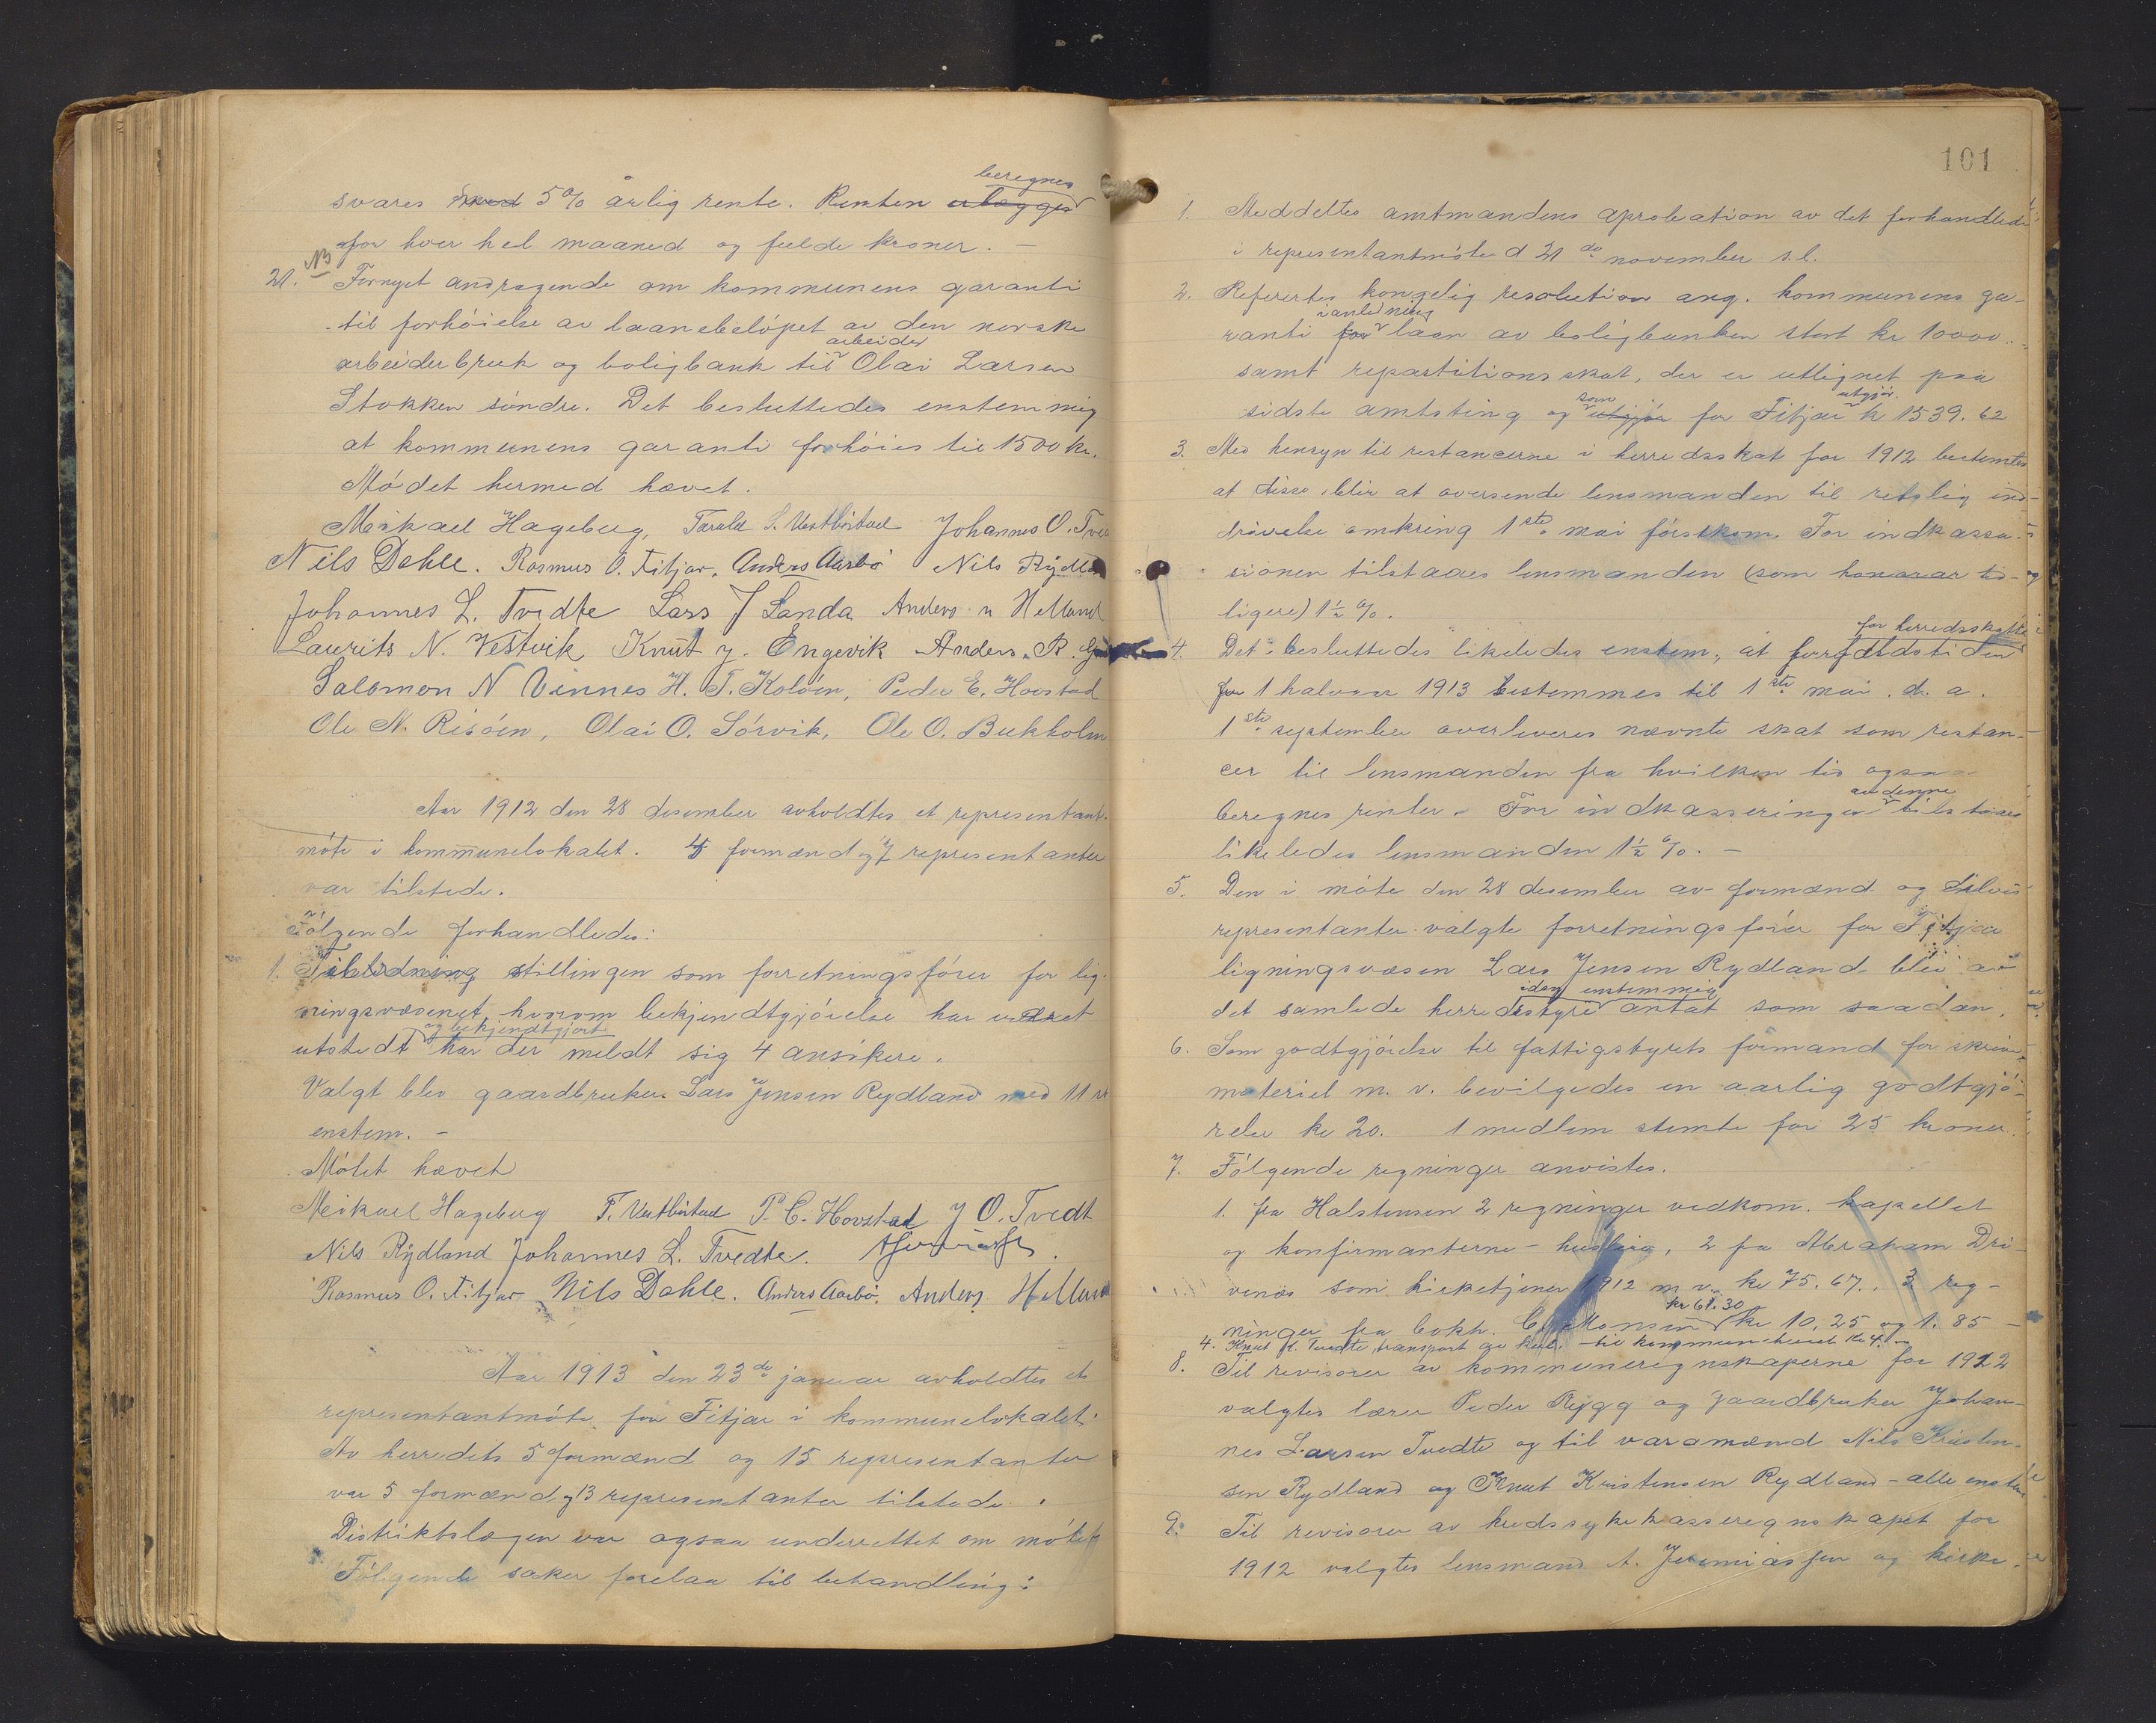 beregnes
svares med 5% årlig rente. Renten erlægges
for hver hel maaned og fulde kroner. —
NB
21. Fornyet andragende om kommunens garanti
til forhöielse av laanebelöpet av den norske
arbeider
arbeiderbruk og boligbank til Olai Larsen
Stokken söndre. Det besluttedes enstemmig
at kommunens garanti forhöies til 1500 kr.
Mödet hermed hævet.
Mikael Hageberg, Tarald S. Vestböstad Johannes O. Tved
Nils Dahle. Rasmus O. Fitjar. Anders Aarbö Nils Rydland
Johannes L. Tvedte Lars J Landa Anders n Helland
Laurits N. Vestvik Knut J. Engevik Anders. R.
Salomon N Vinnes H. T. Koløen, Peder E. Hovstad
Ole N. Risöen, Olai O. Sörvik, Ole O. Bukholm
Aar 1912 den 28 desember avholdtes et representant-
möte i kommunelokalet. 4 formænd og 7 representanter
var tilstede.
Fölgende forhandledes:
1. stillingen som forretningsförer for lig-
ningsvæsenet, hvorom bekjendtgjörelse har været
og bekjendtgjort
utstedt har der meldt sig 4 ansökere.
Valgt blev gaardbruker Lars Jensen Rydland med 11 st
enstem. —
Mötet hævet
Mikael Hageberg T. Vestböstad P. E. Hovstad J O. Tvedt
Nils Rydland Johannes L. Tvedte.
Rasmus O. Fitjar Nils Dahle. Anders Aarbö. Anders Helland
Aar 1913 den 23de januar avholdtes et
representantmöte for Fitjar i kommunelokalet.
Av herredets 5 formænd og 15 representanter
var 5 formænd og 13 representanter tilstede.
Distriktslægen var ogsaa underrettet om mötet
Fölgende saker forelaa til behandling:
101
1. Meddeltes amtmandens aprobation av det forhandlede
i representantmöte d 21de november s.l.
2. Refertes kongelig resolution ang. kommunens ga-
i anledning
ranti for laan av boligbanken stort kr 10000..
samt repartitionsskat, der er utlignet paa
som utgjör
sidste amtsting og utgjör for Fitjar kr 1539.62
3. Med hensyn til restancerne i herredsskat for 1912 bestemtes
at disse blir at oversende lensmanden til retslig ind-
drivelse omkring 1ste mai förstkom. For indkassa-
sionen tilstaaes lensmanden (som tid-
ligere) 1½ %.
for herredsskatten
4. Det besluttedes likeledes enstem., at forfaldstiden
for 1 halvaar 1913 bestemmes til 1ste mai d. a.
1ste september overleveres nævnte skat som restan-
cer til lensmanden fra hvilken tid ogsaa
av denne
beregnes renter. For indkasseringen tilstaaes
likeledes lensmanden 1½ %. —
5. Den i möte den 28 desember av formænd og delvis
representanter valgte forretningsförer for Fitjar
ligningsvæsen Lars Jensen Rydland blev av
idag enstemmig
det samlede herredsstyre antat som saadan.
6. Som godtgjörelse til fattigstyrets formand for skrive-
materiel m. v. bevilgedes en aarlig godtgjö-
relse kr 20. 1 medlem stemte for 25 kroner.
7. Fölgende regninger anvistes.
1. fra Halstensen 2 regninger vedkom. kapellet
og konfirmanterne - husleie, 2 fra Abraham Dri-
venes som kirketjener 1912 m. v. kr 75.67., 3 reg-
kr 61.30
ninger fra bokh. Monsen kr 10,25 og 1.85 —
4. Knut K. Tvedte, transport av til kommunehuset kr 4.
8. Til revisorer av kommuneregnskaperne for 1912
valgtes lærer Peder Rygg og gaardbruker Johan-
nes Larsen Tvedte og til varamænd Nils Kristen-
sen Rydland og Knut Kristensen Rydland - alle enstem
9. Til revisorer av kredssykekasseregnskapet for
1912 valgtes lensmand A. Jeremiassen og kirke-